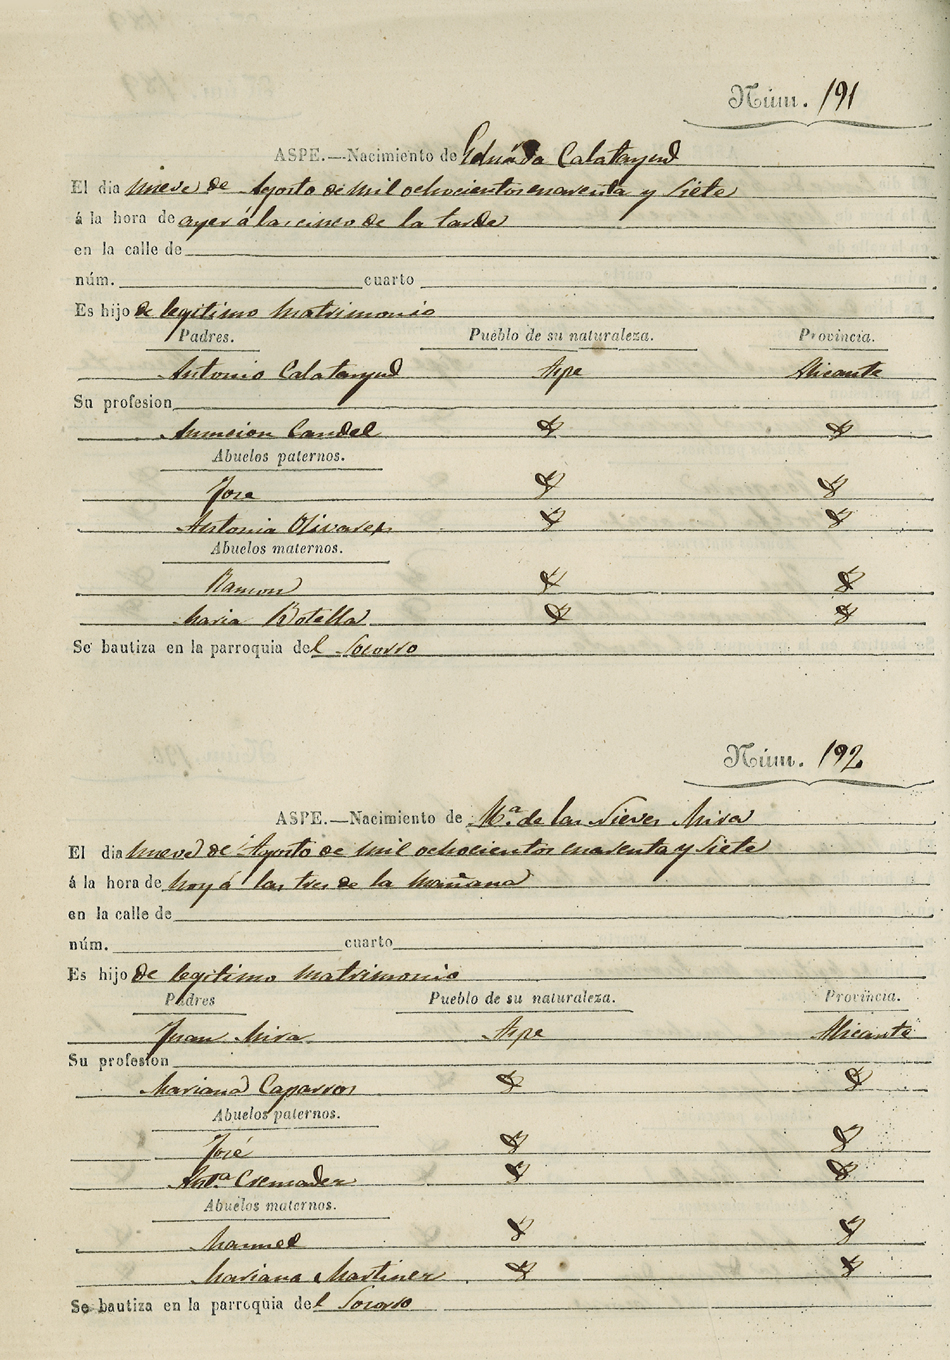 Núm. 191
ASPE.—Nacimiento de Calatayud
El dia nueve de Agosto de mil ochocientos cuarenta y siete
á la hora de ayer á las cinco de la tarde
en la calle de
núm. cuarto
Es hijo de legitimo matrimonio
Padres. Pueblo de su naturaleza. Provincia.
Antonio Calatayud Aspe Alicante
Su profesion
Asuncion Candel
Abuelos paternos.
Jose
Antonia Olivares
Abuelos maternos.
Ramon
Maria Botella
Se bautiza en la parroquia del Socorro
Núm. 192
ASPE.—Nacimiento de Mª. de las Nieves Mira
El dia nueve de Agosto de mil ochocientos cuarenta y siete
á la hora de hoy á las tres de la mañana
en la calle de
núm. cuarto
Es hijo de legitimo matrimonio
Padres Pueblo de su naturaleza. Provincia.
Juan Mira Aspe Alicante
Su profesion
Mariana Caparros
Abuelos paternos.
José
Antª. Cremades
Abuelos maternos.
Manuel
Mariana Martinez
Se bautiza en la parroquia del Socorro